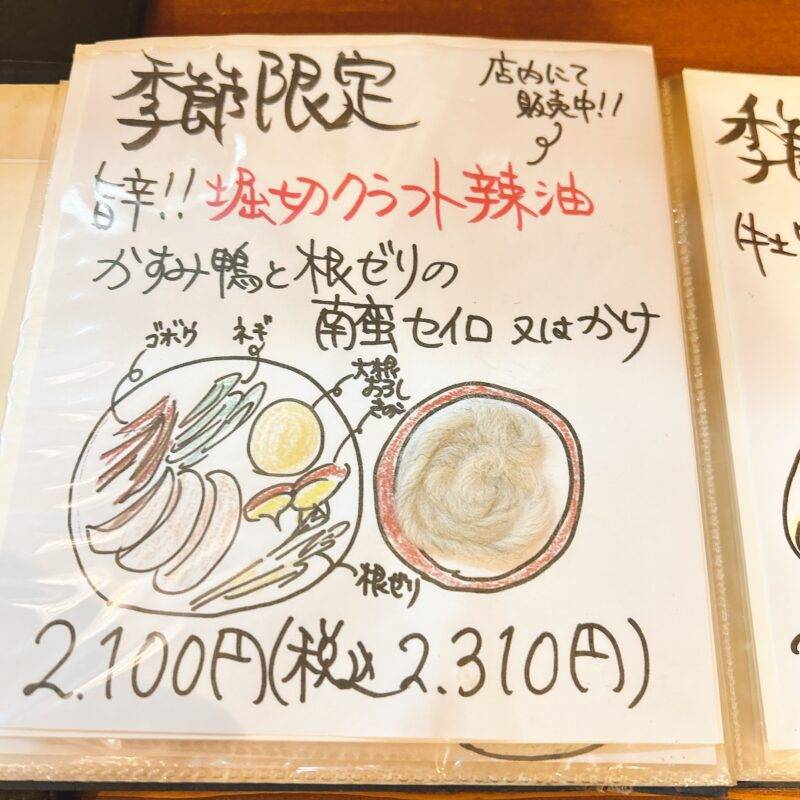 季節限定
店内にて
販売中!!
旨辛!! 堀切クラフト辣油
かすみ鴨と根ゼリの
南蛮セイロ 又はかけ
ゴボウ
ネギ
大根
おろし
きのこ
根ゼリ
2.100円(税込2.310円)
季節
牡